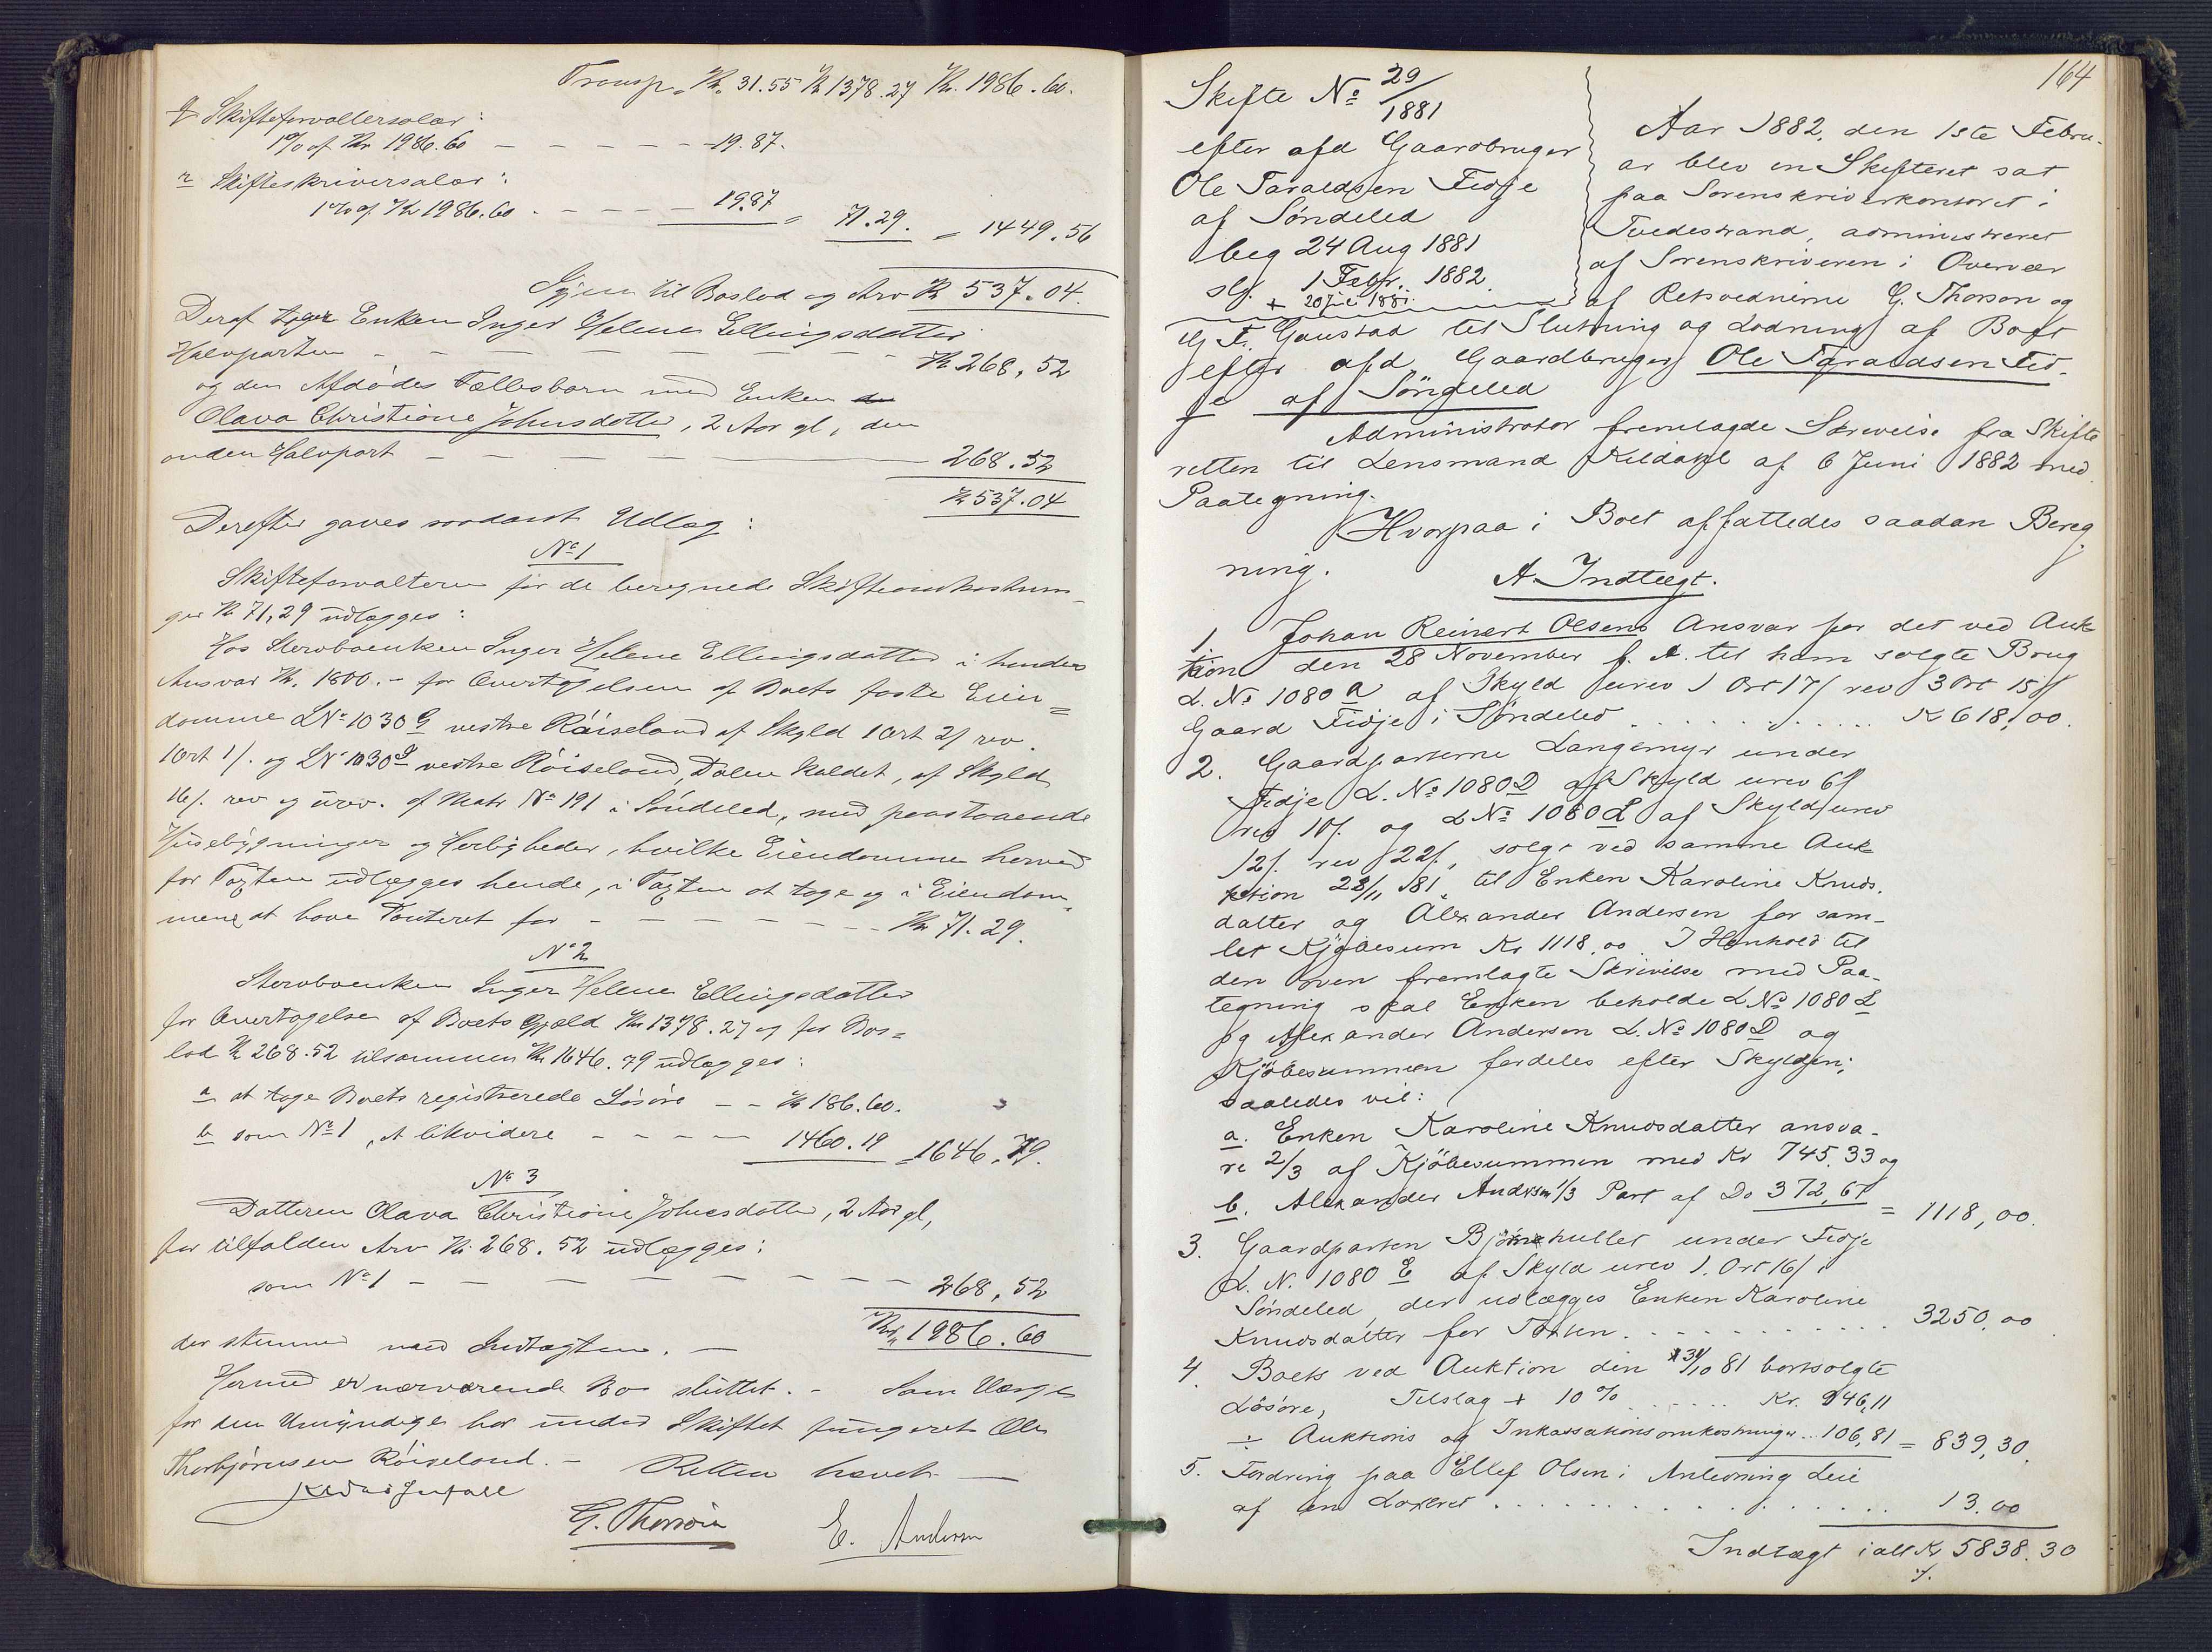 Transp. Kr. 31.55 Kr 1378.27 Kr. 1986.60.
q Skifteforvaltersalær:
1% af Kr 1986.60 — — — — — 19.87.
r Skifteskriversalær:
1% af Kr 1986.60 . — — — — 19.87 = 71.29. = 1449.56
Igjen til Boslod og Arv Kr 537.04.
Deraf tager Enken Inger Helene Ellingsdatter
Halvparten — — — — — — — Kr 268,52
og den Afdødes Fællesbarn med Enken
Olava Christiane Johnsdatter, 2 Aar gl, den
anden Halvpart — — — — 268.52
Kr 537.04
Derefter gaves saadant Udlæg:
No 1
Skifteforvalteren for de beregnede Skifteomkostnin-
ger Kr 71,29 udlægges:
Hos Stervboenken Inger Helene Ellingsdatter i hendes
Ansvar Kr. 1800.- for Overtagelsen af Boets faste Eien=
domme LNo 1030 G vestre Røiseland af Skyld 1 Ort 2/ rev.
1 Ort 1/. og LNo 1030 g vestre Røiseland, Dalen kaldet, af Skyld
16/. rev og urev. af Matr No 191 i Søndeled, med paastaaende
Husebygninger og Herligheder, hvilke Eiendomme herved
for Taxten udlægges hende, i Taxten at tage og i Eiendom-
mene at have Panteret for — — — — — Kr 71.29.
No 2
Stervboenken Inger Helene Ellingsdatter
for Overtagelse af Boets Gjæld Kr 1378.27 og for Bos=
lod Kr 268.52 tilsammen Kr 1646.79 udlægges:
a at tage Boets registrerede Løsøre — — Kr 186.60.
b som No 1, at likvidere — — — — 1460.19 = 1646.79.
No 3
Datteren Olava Christiane Johnsdatter, 2 Aar gl,
for tilfalden Arv Kr. 268.52 udlægges:
som No 1 — — — — — — — — 268,52
Kr. 1986.60
der stemmer med Indtægten. —
Hermed er nærværende Bo sluttet. - Som Værge
for den Umyndige har under Skiftet fungeret Ole
Thorbjørnsen Røiseland. — Retten hævet. —
G. Thorson E. Andersen
164
Skifte No 29/1881
efter afd Gaardbruger
Ole Taraldsen Fidje
af Søndeled
beg 24 Aug 1881
slt. 1 Febr. 1882.
+ 20 Juli 1881.
Aar 1882, den 1ste Febru-
ar blev en Skifteret sat
paa Sorenskriverkontoret i
Tvedestrand, administreret
af Sorenskriveren i Overvær
af Retsvidnerne G. Thorson og
G F. Gaustad til Slutning og Lodning af Boet
efter afd Gaardbruger Ole Taraldsen Fid-
je af Søndeled
Administrator fremlagde Skrivelse fra Skifte
retten til Lensmand Kildahl af 6 Juni 1882 med
Paategning.
Hvorpaa i Boet affattedes saadan Bereg
ning.
A. Indtægt.
1. Johan Reinert Olsens Ansvar for det ved Auk
tion den 28 November f. A. til ham solgte Brug
L. No 1080 a af Skyld urev 1 Ort 17/ rev 3 Ort 15/
Gaard Fidje i Søndeled . . . . . . . . . . Kr 618,00.
2. Gaardparterne Langemyr under
Fidje L. No 1080 D af Skyld urev 6/
rev 10/. og L No 1080 L af Skyld urev
12/. rev 22/., solgt ved samme Auk
tion 28/11 81 til Enken Karoline Knuds.
datter og Alexander Andersen for sam-
let Kjøbesum Kr 1118.00. I Henhold til
den oven fremlagte Skrivelse med Paa-
tegning skal Enken beholde L No 1080 L
og Alexander Andersen L. No 1080 D og
Kjøbesummen fordeles efter Skylden;
saaledes vil:
a. Enken Karoline Knudsdatter ansva-
re 2/3 af Kjøbesummen med Kr 745.33 og
b. Alexander Andersen 1/3 Part af Do 372,67 = 1118,00.
3. Gaardparten Bjørnehullet under Fidje
L. N. 1080 E af Skyld urev 1. Ort 16/ i
Søndeled, der udlægges Enken Karoline
Knudsdatter for Taxten. . . . . . . . . . . 3250,00
4. Boets ved Auktion den 31/10 81 bortsolgte
Løsøre, Tilslag + 10 % . . . . . . Kr. 946,11
÷ Auktions og Inkassationsomkostninger.. 106,81 = 839,30.
5. Fordring paa Ellef Olsen i Anledning Leie
af en . . . . . . . . . . . . 13.00
Indtægt i alt Kr 5838.30